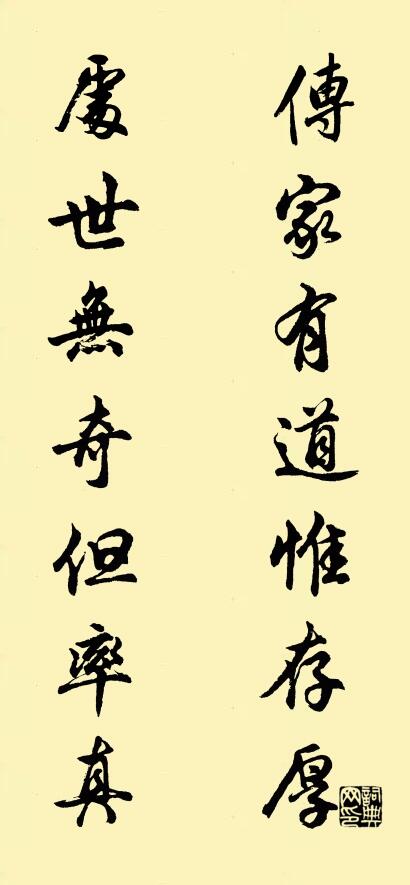 傳家有道惟存厚
處世無奇但率真
詞典網印